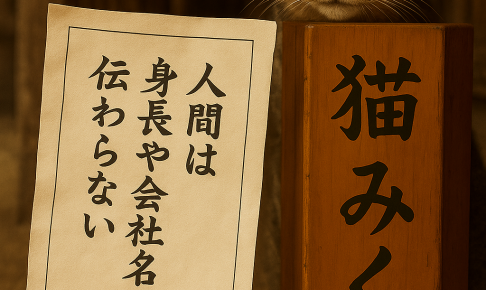 人間は
身長や会社名
伝わらない
猫みく